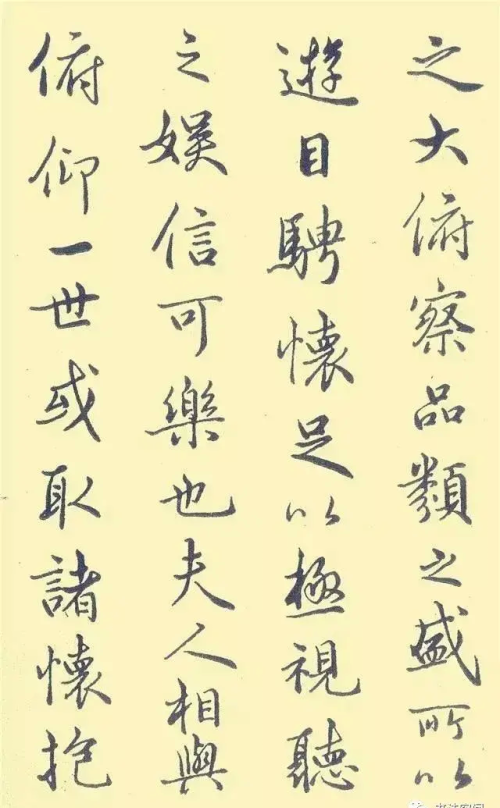 之大俯察品類之盛所以
遊目騁懷足以極視聽
之娱信可樂也夫人相與
俯仰一世或取諸懷抱